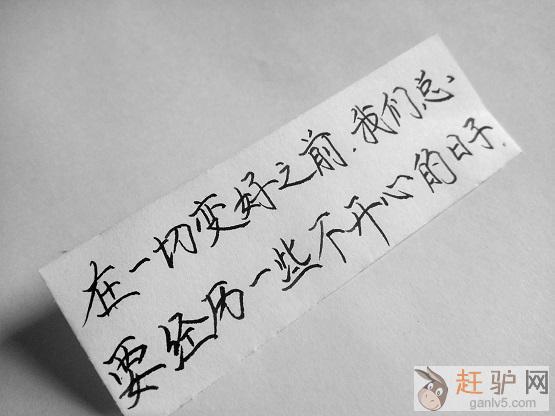 在一切变好之前,我们总
要经历一些不开心的日子.
赶驴网
ganlv5.com